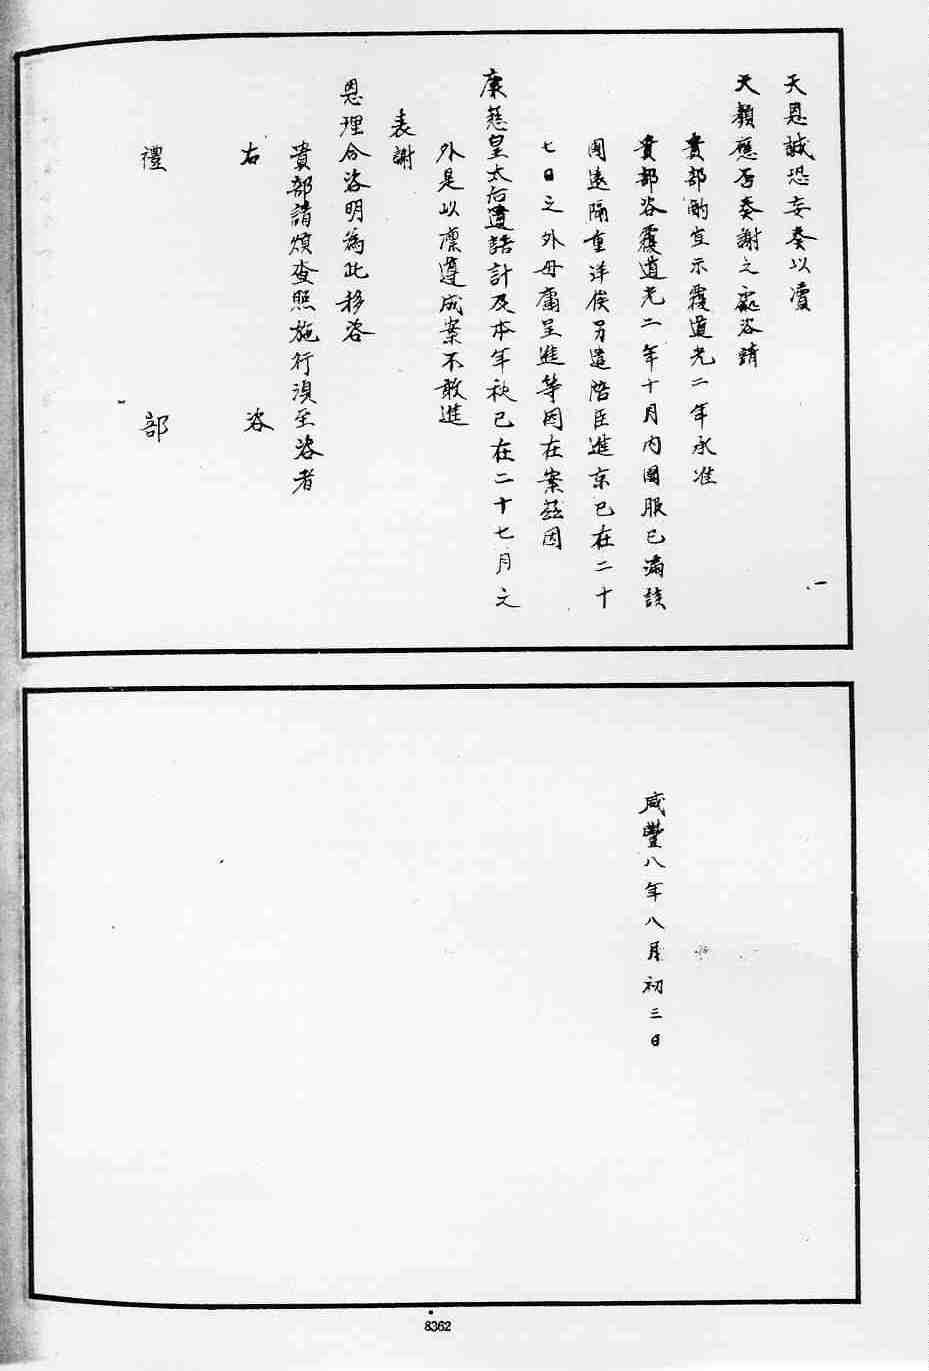 天恩誠恐妄奏以瀆
天顏應否奏謝之處咨請
貴部酌宜示覆道光二年承准
貴部咨覆道光二年十月內國服已滿該
國遠隔重洋俟另遣陪臣進京已在二十
七日之外毋庸呈進等因在案茲因
康慈皇太后遺誥計及本年秋已在二十七月之
外是以凜遵成案不敢進
表謝
恩理合咨明為此移咨
貴部請煩查照施行須至咨者
右咨
禮部
咸豐八年八月初三日
8362